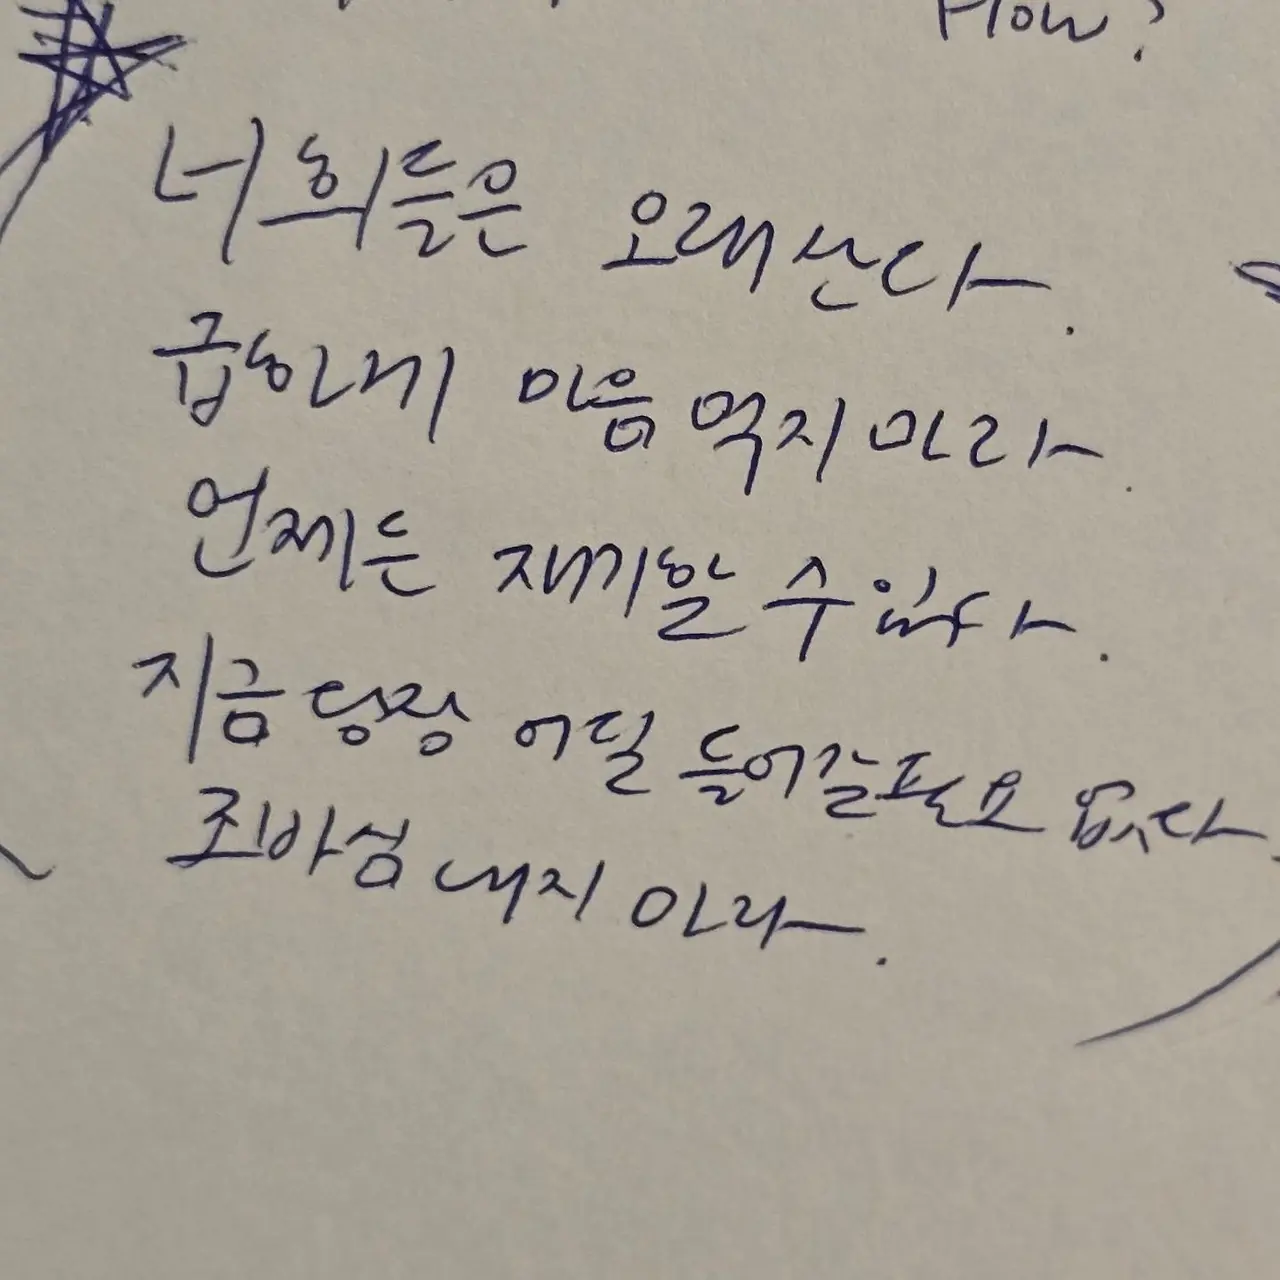 How?
너희들은 오래 산다.
급하게 마음 먹지 마라.
언제든 재기할 수 있다.
지금 당장 어딜 들어갈 필요 없다.
조바심 내지 마라.